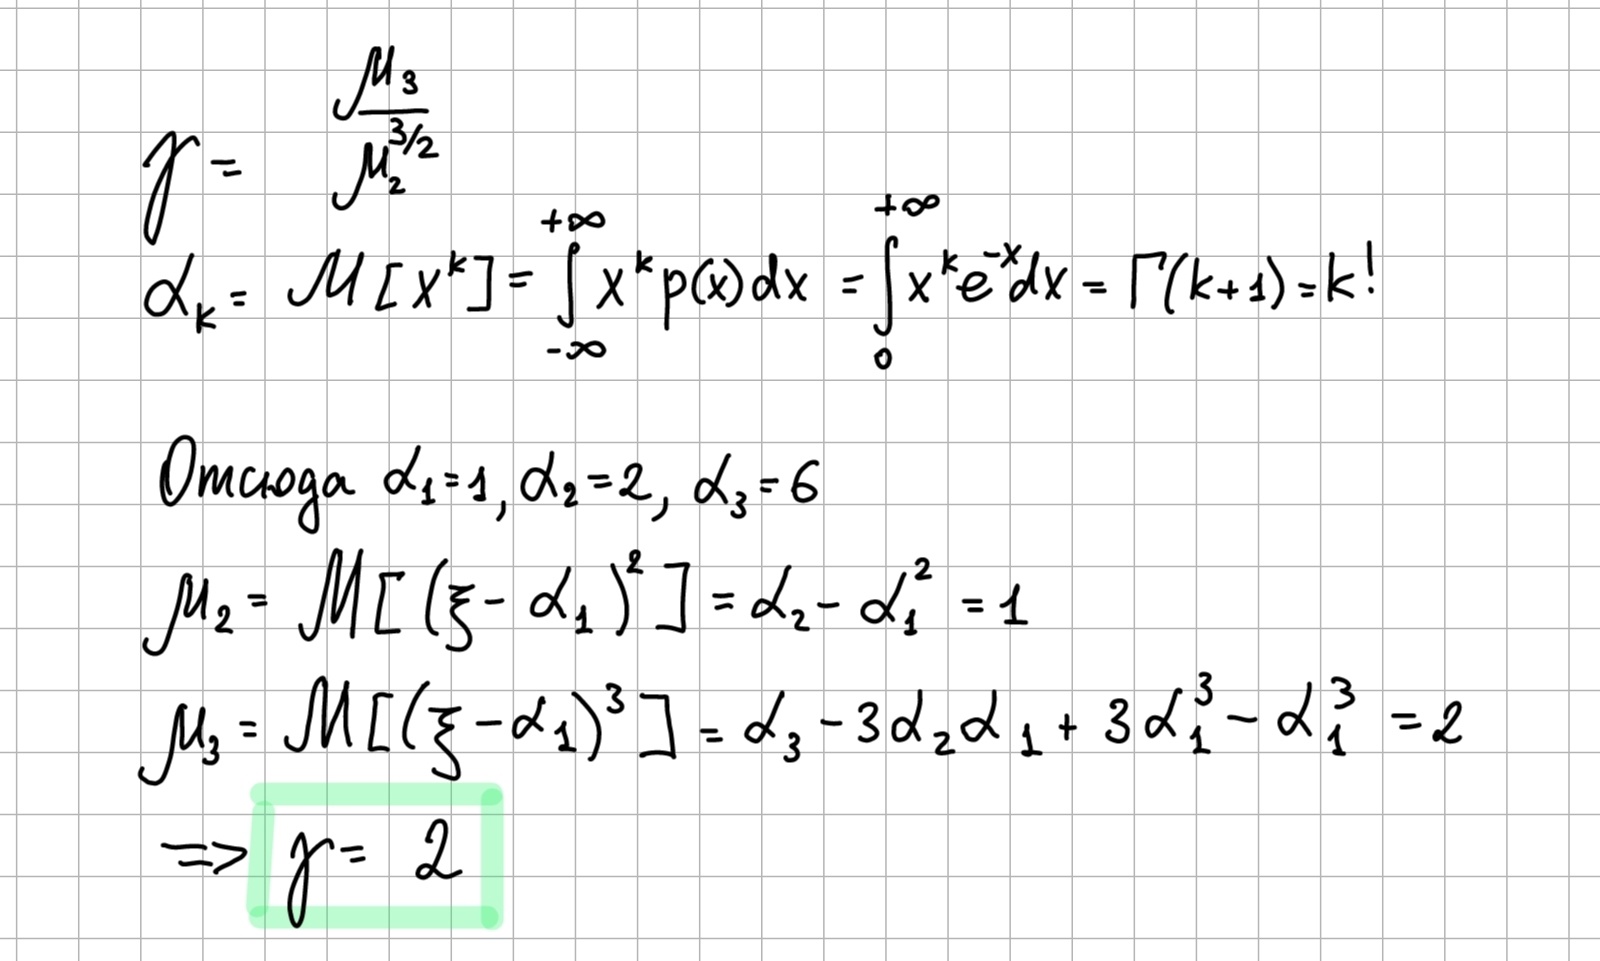 γ = μ₃ / μ₂^(3/2)
α_k = M[x^k] = ∫_{-∞}^{+∞} x^k p(x)dx = ∫_{0}^{+∞} x^k e^{-x} dx = Γ(k+1) = k!
Отсюда α₁=1, α₂=2, α₃=6
μ₂ = M[(ξ - α₁)²] = α₂ - α₁² = 1
μ₃ = M[(ξ - α₁)³] = α₃ - 3α₂α₁ + 3α₁³ - α₁³ = 2
=> γ = 2